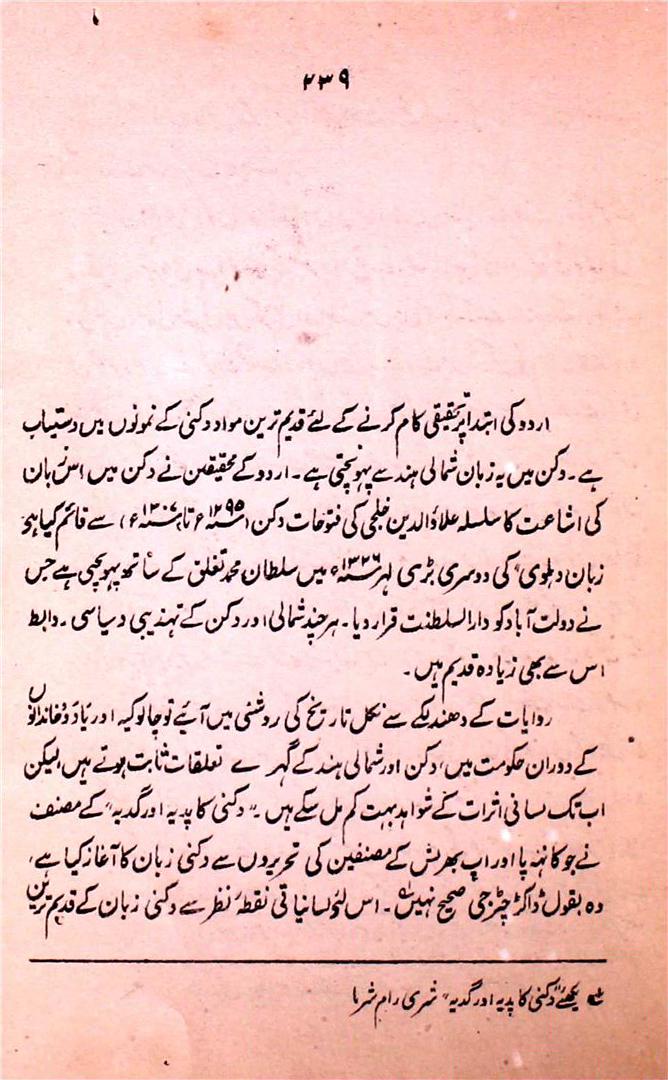 ۲۳۹
اردو کی ابتدا پر تحقیقی کام کرنے کے لئے قدیم ترین مواد دکنی کے نمونوں میں دستیاب
ہے۔ دکن میں یہ زبان شمالی ہند سے پہونچتی ہے۔ اردو کے محققین نے دکن میں اس زبان
کی اشاعت کا سلسلہ علاؤالدین خلجی کی فتوحات دکن (۱۲۹۵ء تا ۱۳۰۷ء) سے قائم کیا ہے
زبان دہلوی، کی دوسری بڑی لہر ۱۳۲۶ء میں سلطان محمد تغلق کے ساتھ پہونچی ہے جس
نے دولت آباد کو دارالسلطنت قرار دیا۔ ہر چند شمالی اور دکن کے تہذیبی و سیاسی۔ وابط
اس سے بھی زیادہ قدیم ہیں۔
روایات کے دھندلکے سے نکل تاریخ کی روشنی میں آیئے تو چالوکیہ اور یادو خاندانوں
کے دوران حکومت میں، دکن اور شمالی ہند کے گہرے تعلقات ثابت ہوتے ہیں لیکن
اب تک لسانی اثرات کے شواہد بہت کم مل سکے ہیں۔ "دکنی کا پدیہ اور گدیہ" کے مصنف
نے جو کانہہ پا اور اپ بھرنش کے مصنفین کی تحریروں سے دکنی زبان کا آغاز کیا ہے،
وہ بقول ڈاکٹر چٹرجی صحیح نہیں۔ اس لئے لسانیاتی نقطۂ نظر سے دکنی زبان کے قدیم ترین
دیکھئے "دکنی کا پدیہ اور گدیہ" شری رام شرما